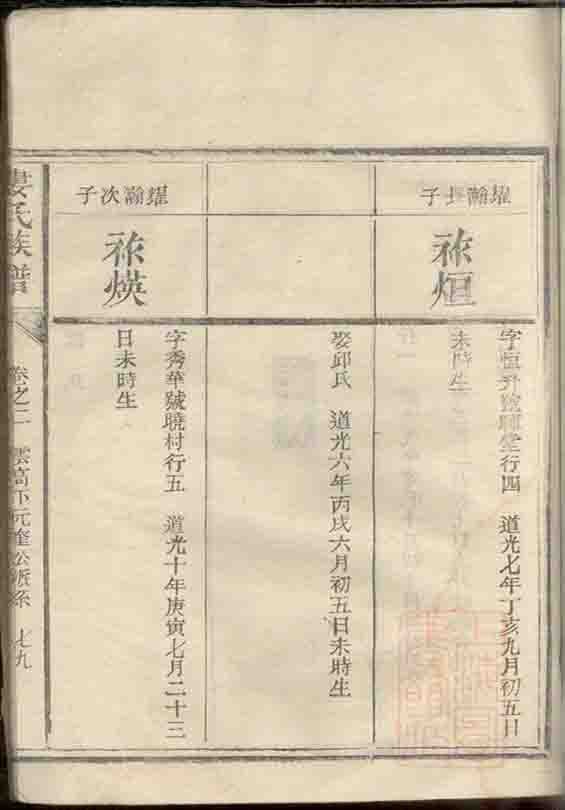 耀瀚長子
祚烜
字恒升號輝堂行四　道光七年丁亥九月初五日
未時生
娶邱氏　道光六年丙戌六月初五日未時生
耀瀚次子
祚煐
字秀華號曉村行五　道光十年庚寅七月二十三
日未時生
婁氏族譜
卷之二　雲高下元奎公派系　七九